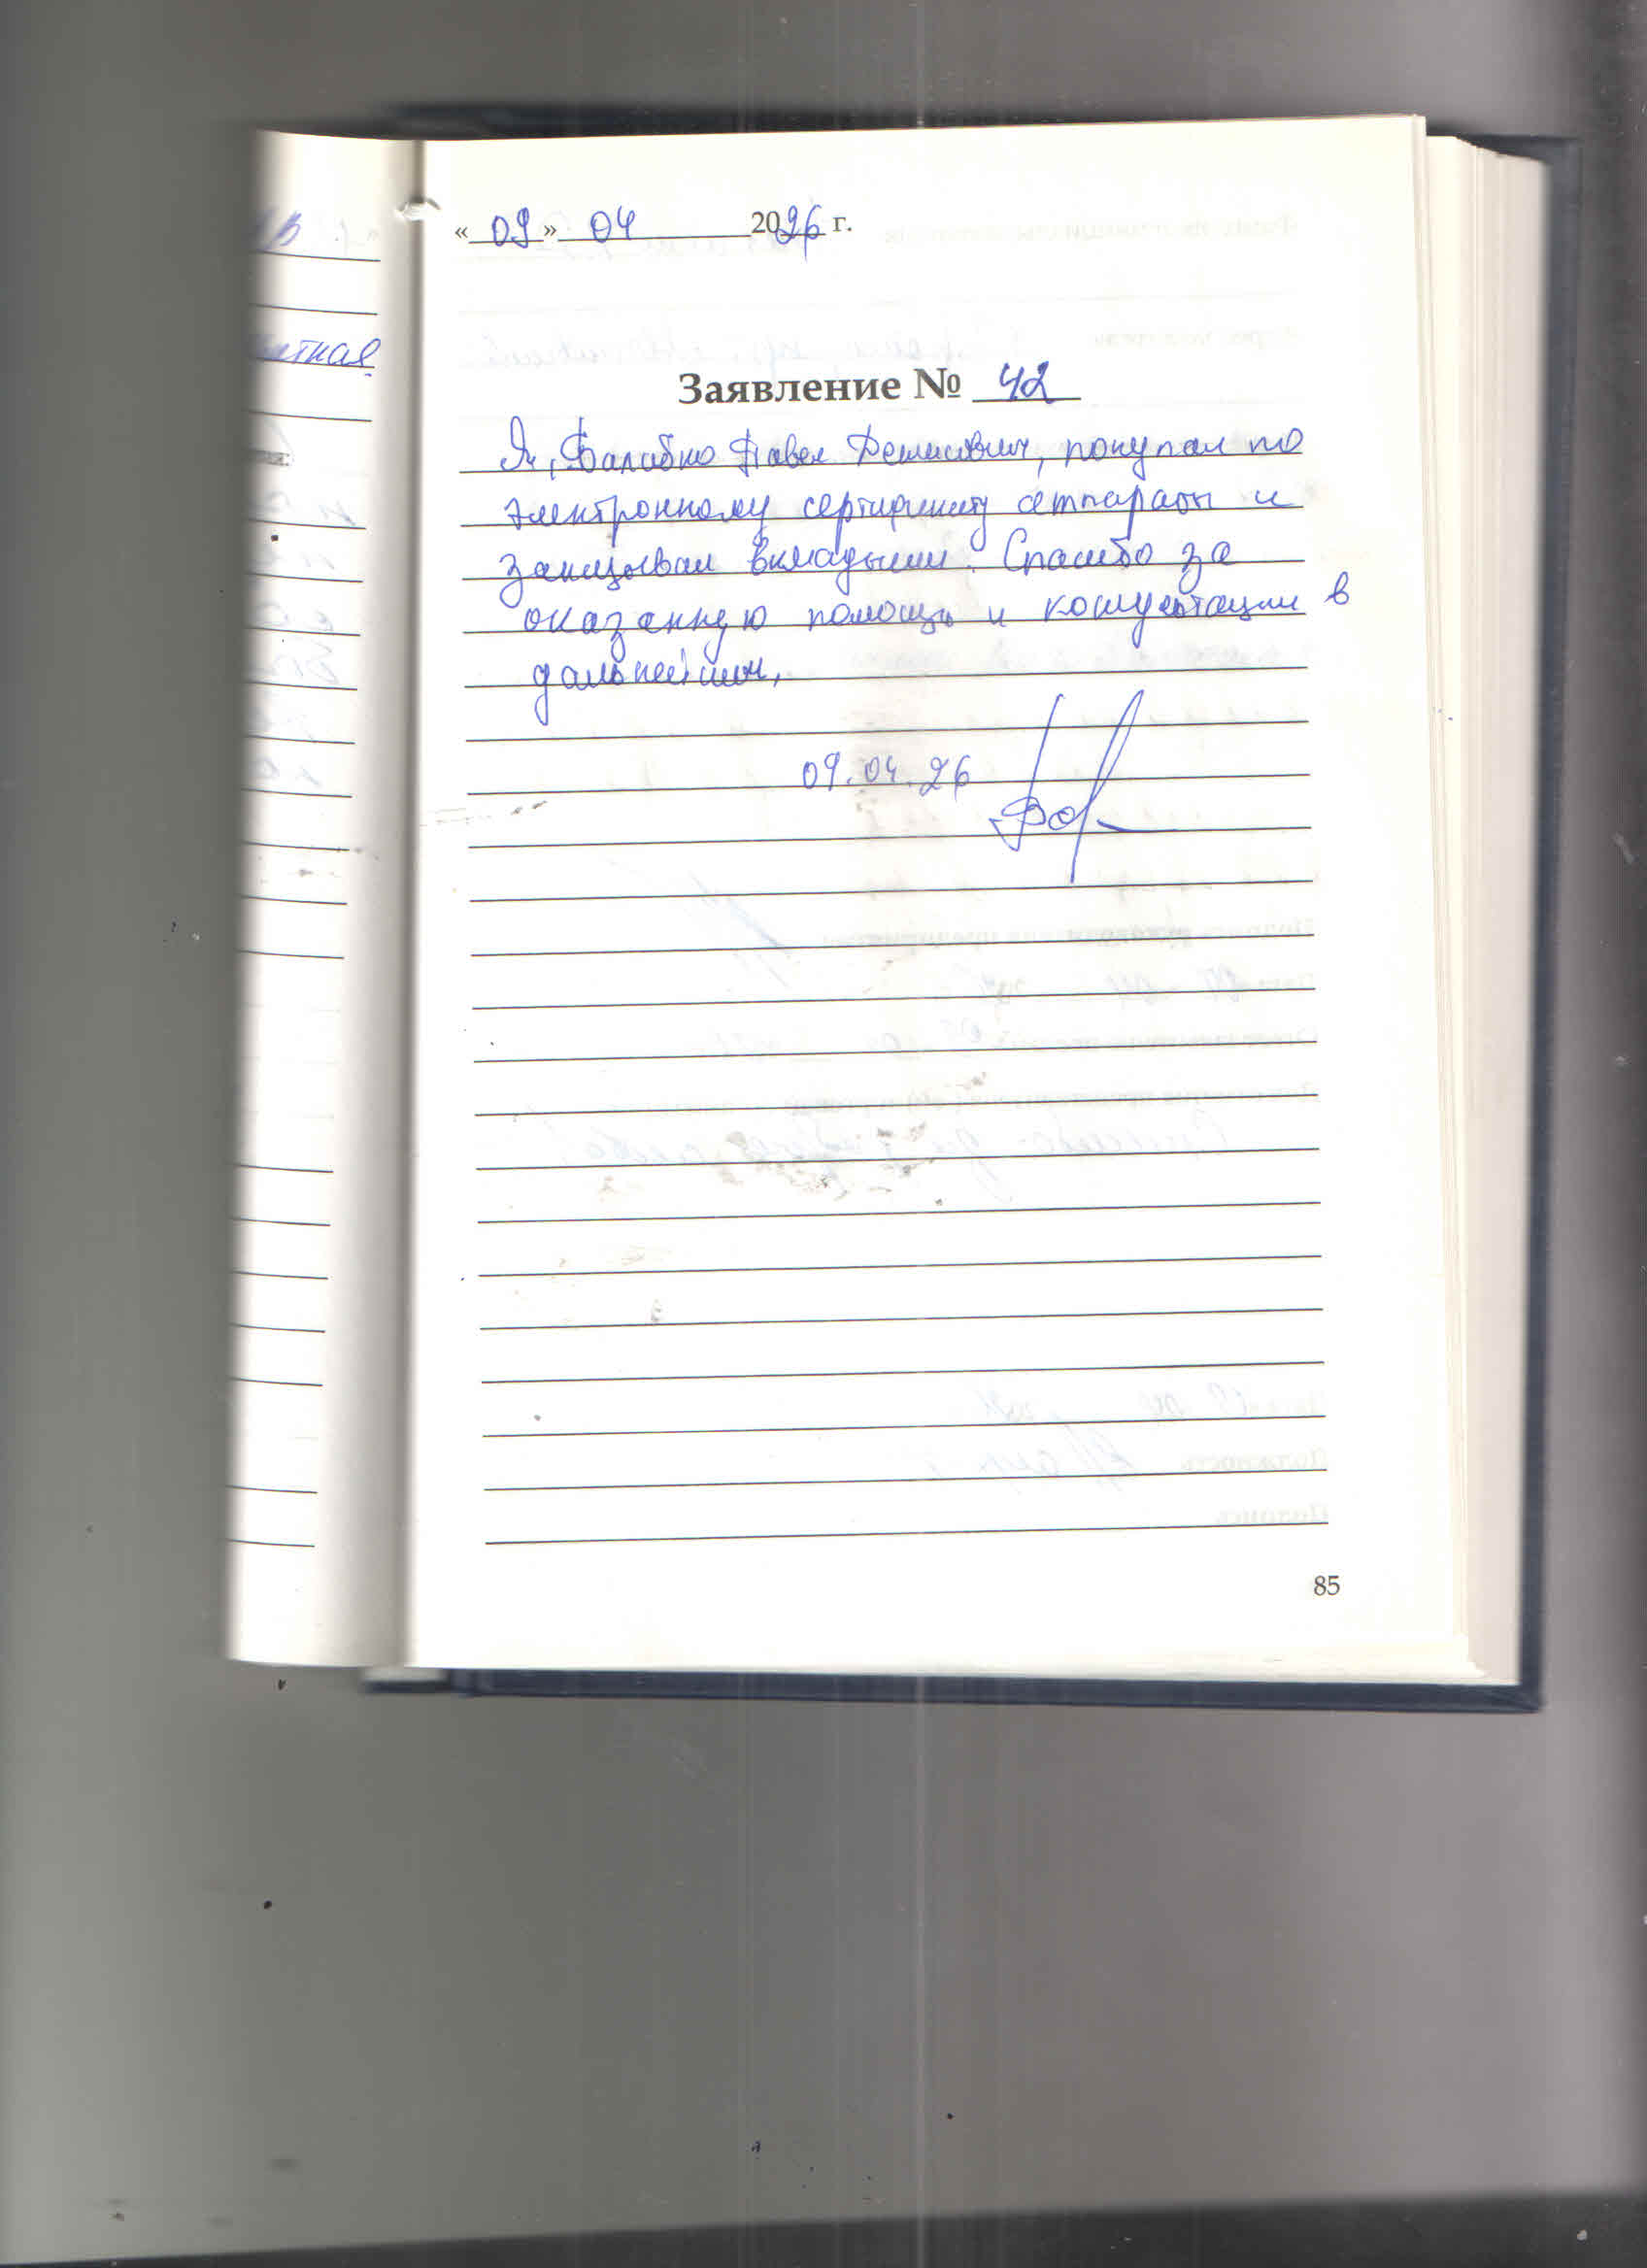 « 09 » 04 2026 г.
тная
Заявление № 42
Я, Балабко Павел Денисович, покупал по
электронному сертификату аппараты и
заказывал вкладыши. Спасибо за
оказанную помощь и консультации в
дальнейшем,
09.04.26
85